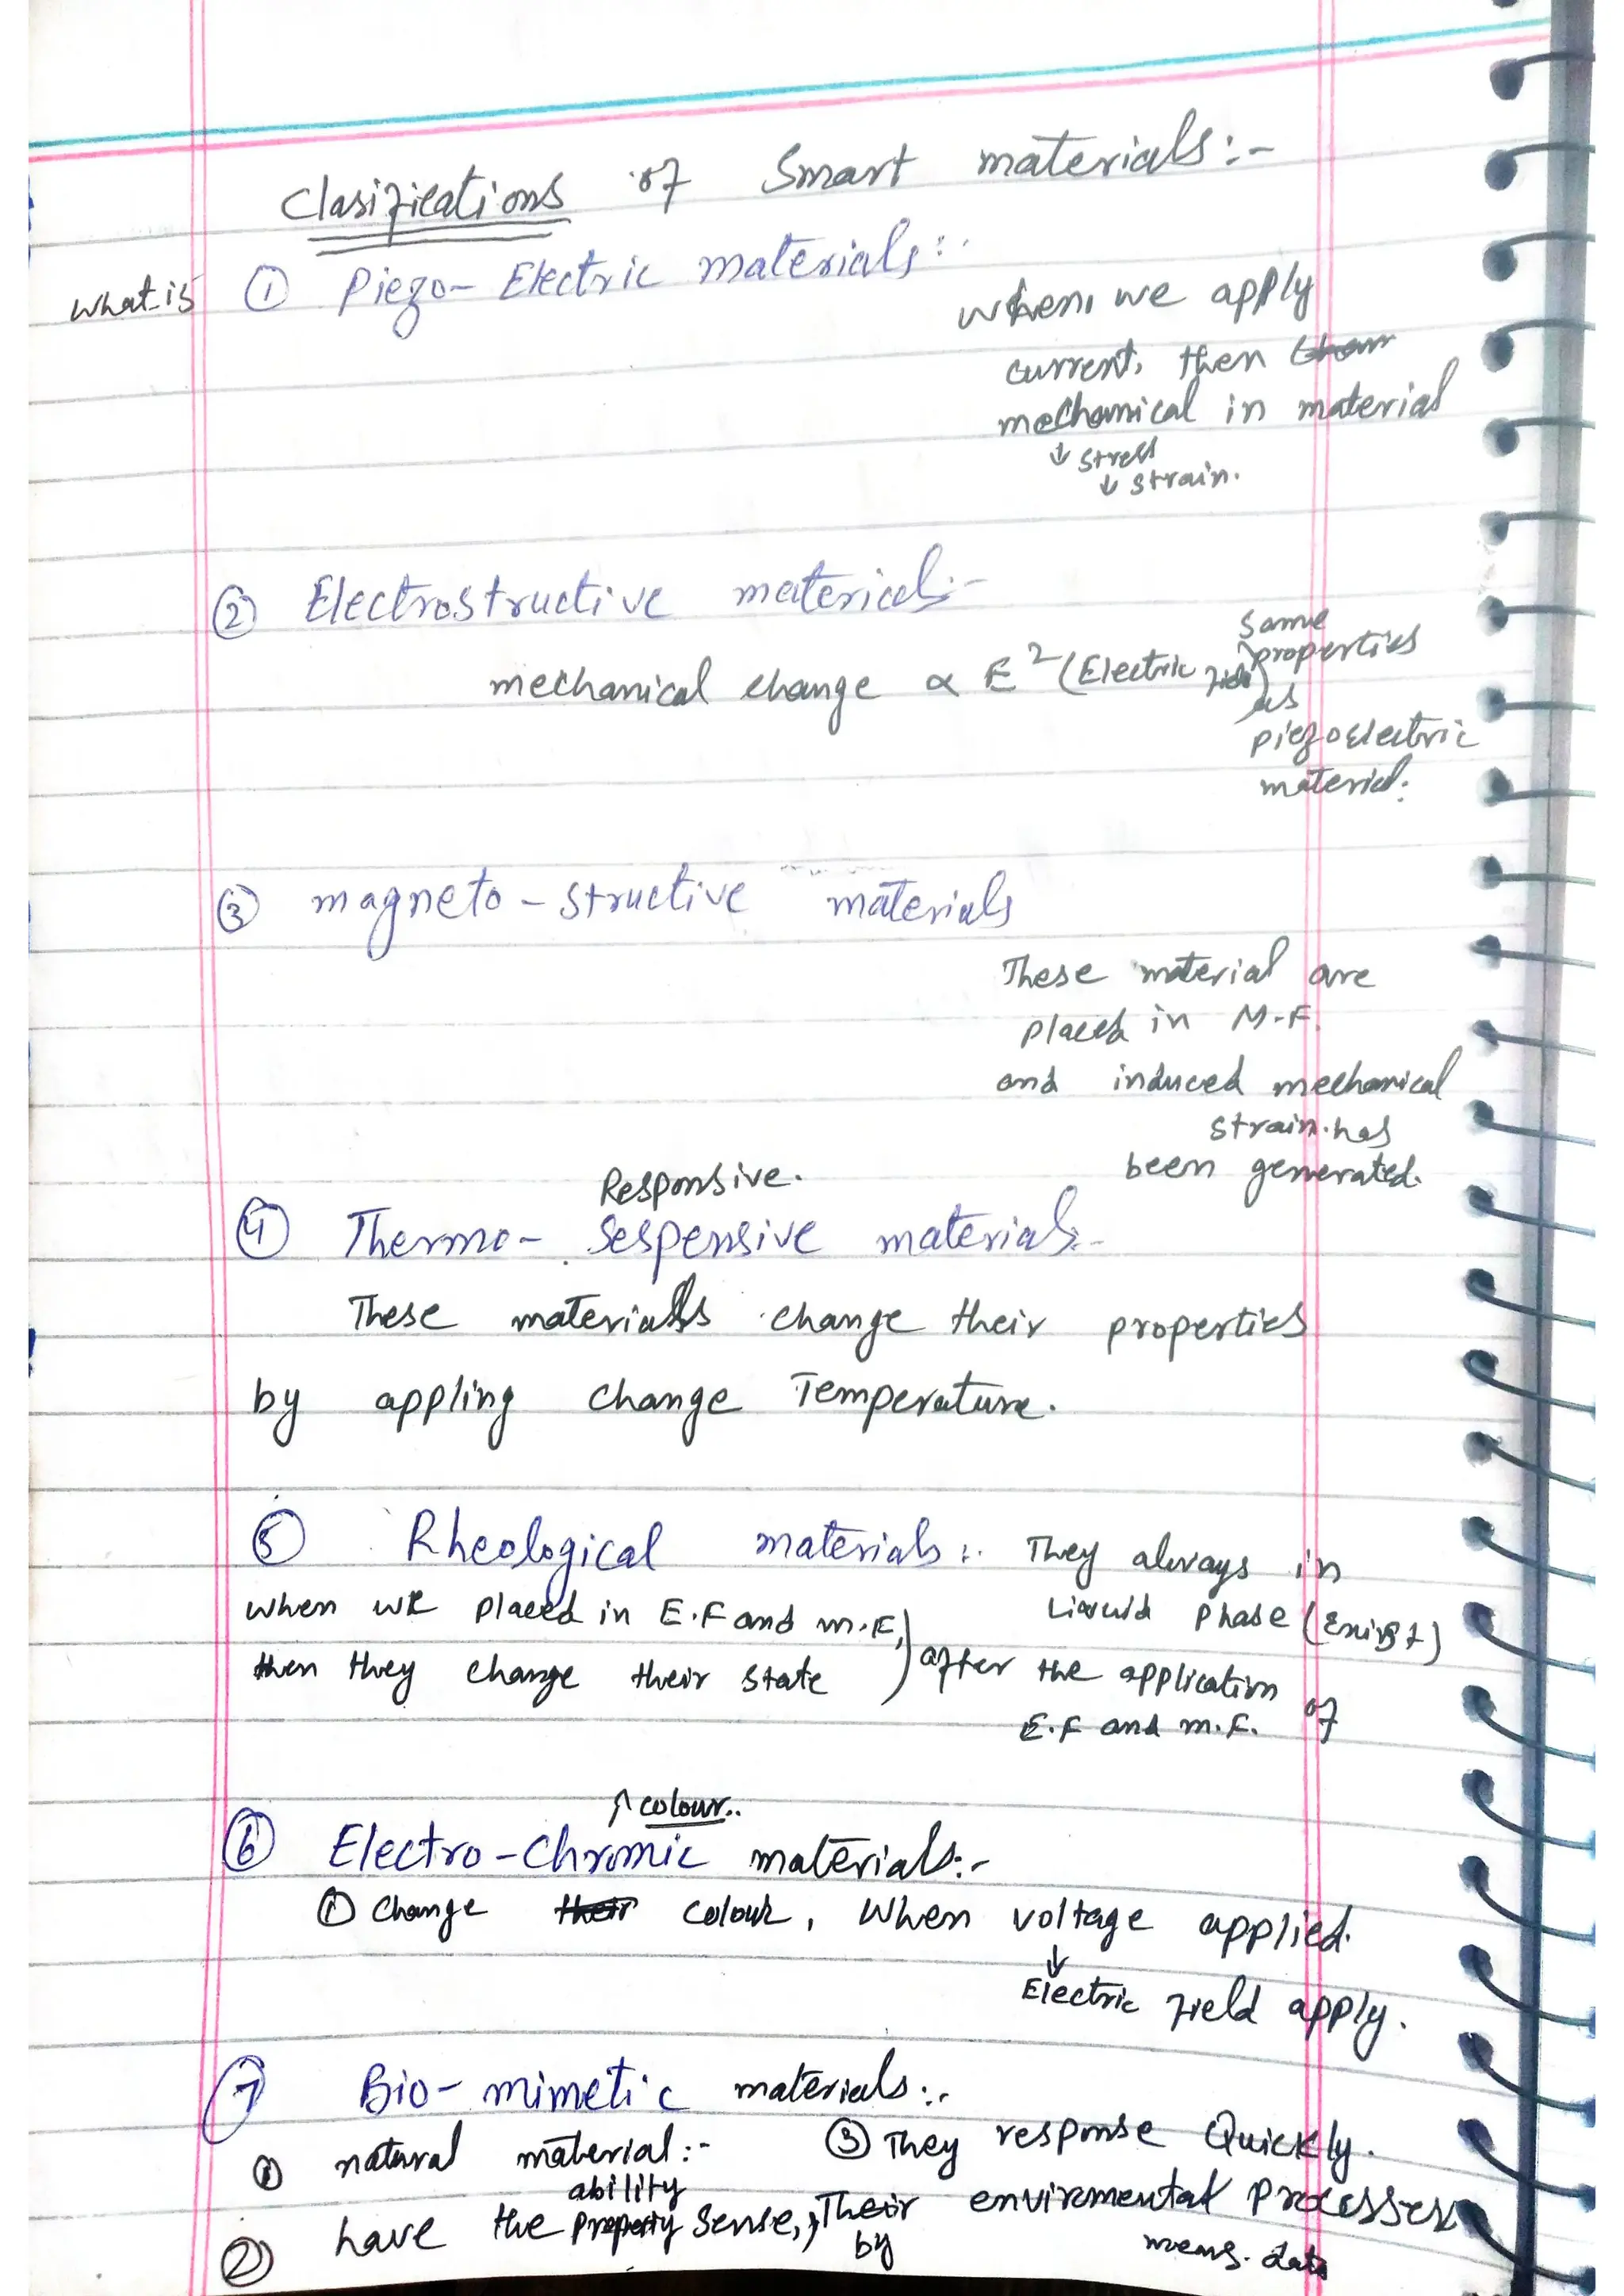 Clasifications of Smart materials:-
What is ① Piezo-Electric materials:-
when we apply
current, then
mechanical in material
↓ stress
↓ strain.
② Electrostructive material:-
mechanical change ∝ E² (Electric field)
same
properties
as
piezoelectric
material.
③ magneto-structive materials
These material are
placed in M.F.
and induced mechanical
strain has
been generated.
Responsive.
④ Thermo- Sespensive materials:-
These materials change their properties
by appling change Temperature.
⑤ Rheological materials:- They always in
Liquid Phase (Exist)
when we placed in E.F and m.F,
then they change their state
after the application of
E.F and m.F.
↑ colour..
⑥ Electro-Chromic materials:-
① Change their colour, When voltage applied.
↓
Electric field apply.
⑦ Bio-mimetic materials:-
① natural material:- ③ They response Quickly.
ability
② have the property sense, Their enviromental Processes
by means. data